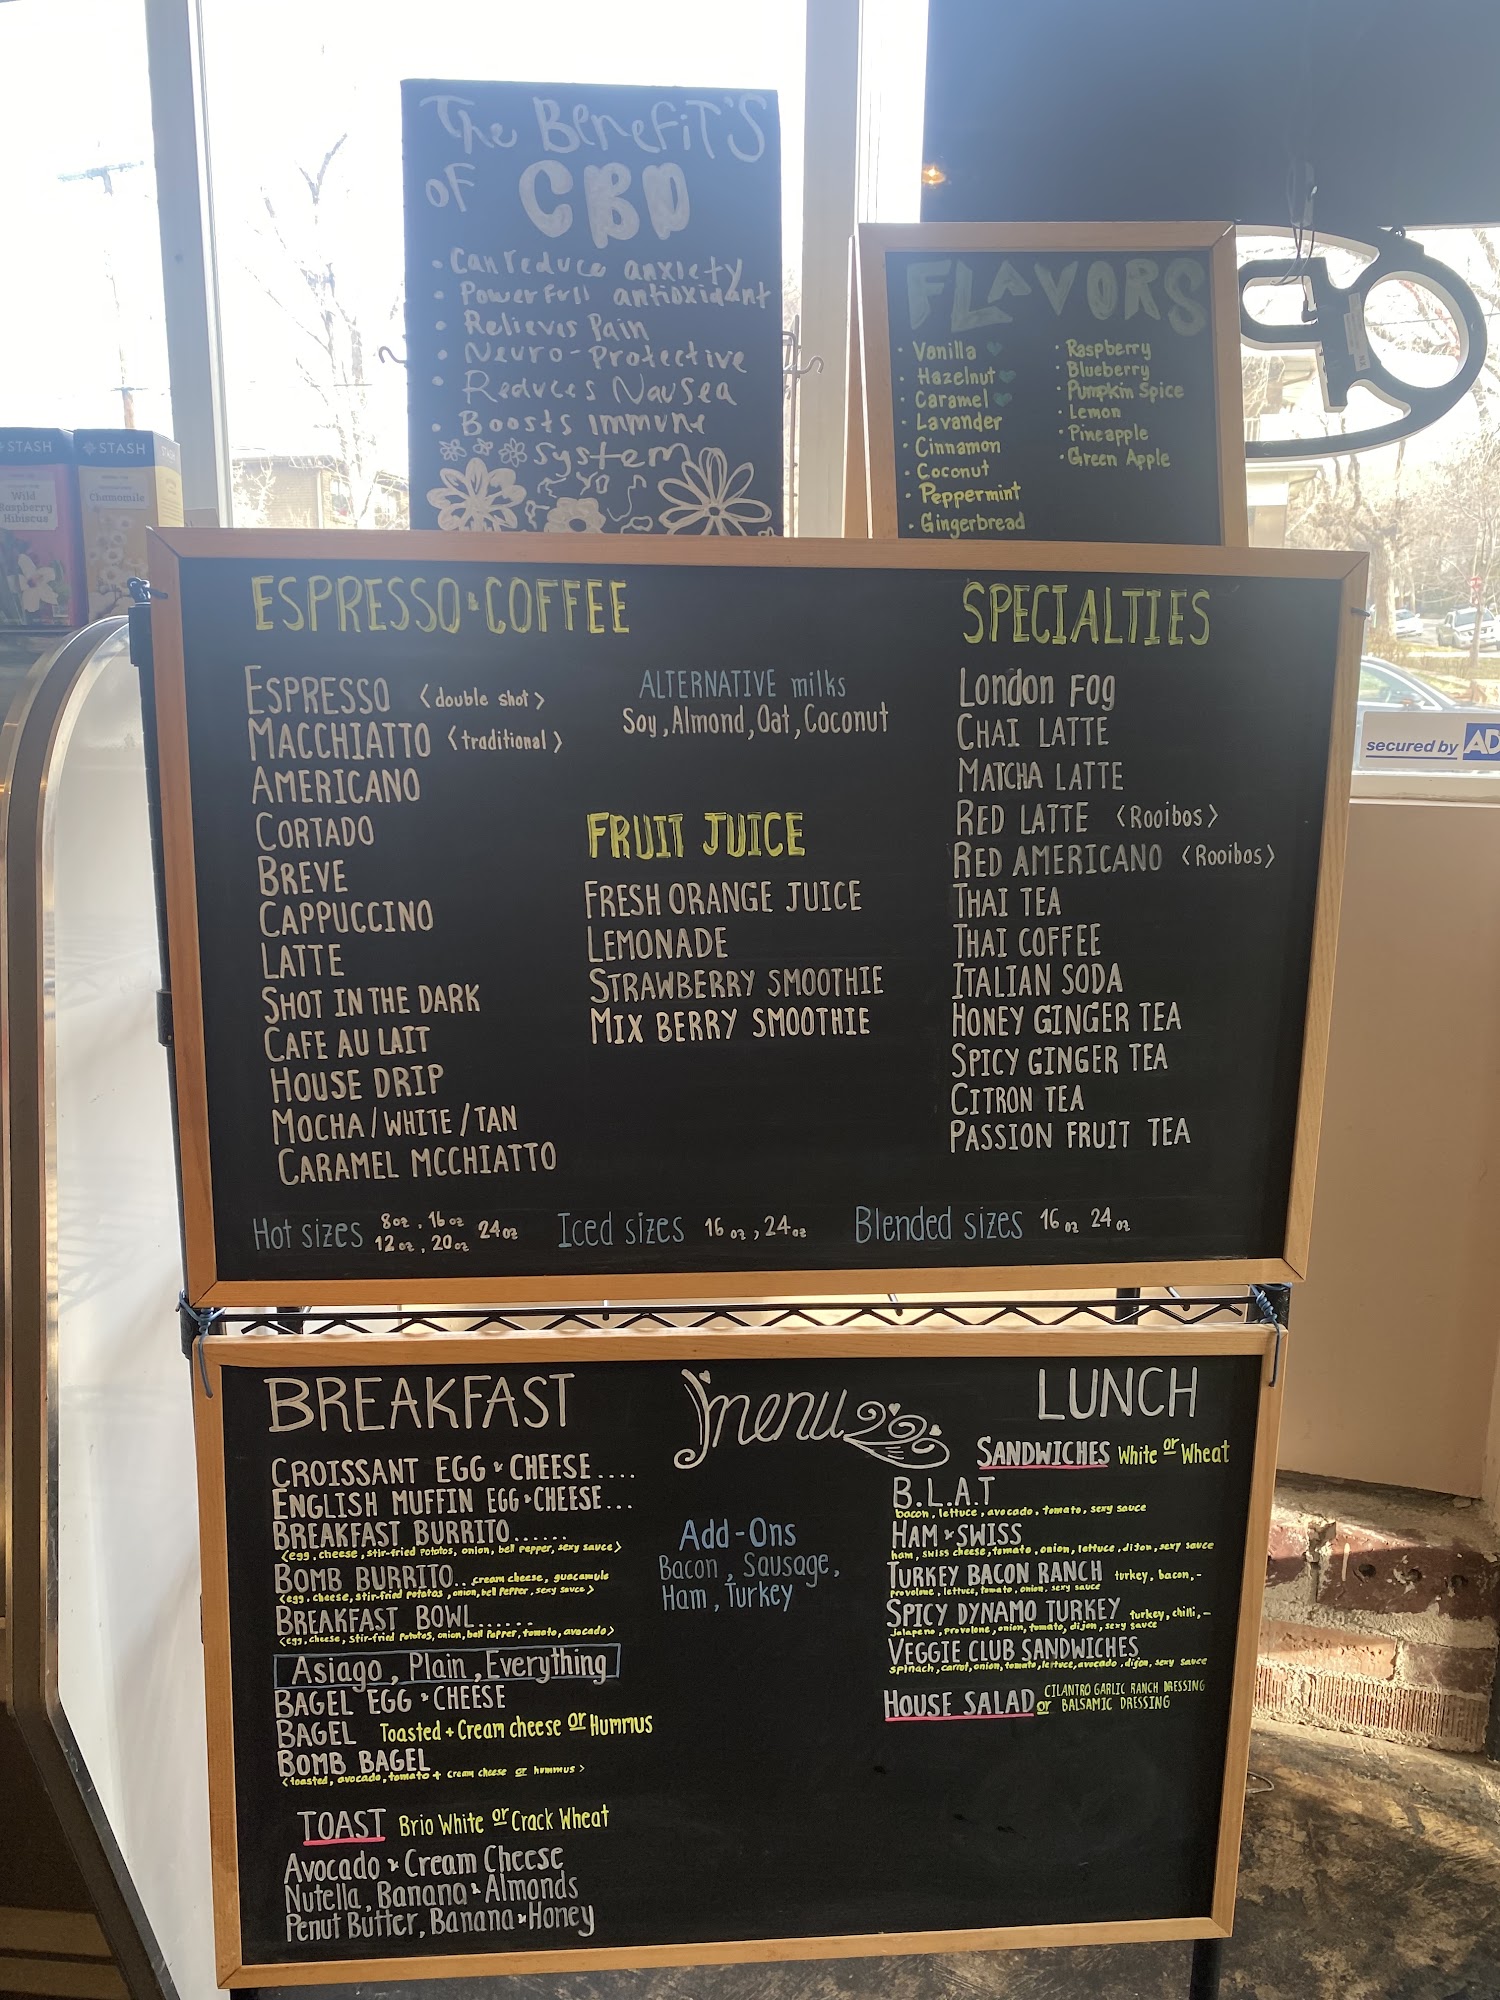 The Benefit's
of CBD
• Can reduce anxiety
• Powerfull antioxidant
• Relieves Pain
• Neuro-Protective
• Reduces Nausea
• Boosts Immune
system
FLAVORS
• Vanilla
• Hazelnut
• Caramel
• Lavander
• Cinnamon
• Coconut
• Peppermint
• Gingerbread
• Raspberry
• Blueberry
• Pumpkin Spice
• Lemon
• Pineapple
• Green Apple
STASH
Wild
Raspberry
Hibiscus
STASH
Chamomile
secured by AD
ESPRESSO & COFFEE
ESPRESSO <double shot>
MACCHIATTO <traditional>
AMERICANO
CORTADO
BREVE
CAPPUCCINO
LATTE
SHOT IN THE DARK
CAFE AU LAIT
HOUSE DRIP
MOCHA / WHITE / TAN
CARAMEL MCCHIATTO
ALTERNATIVE milks
Soy, Almond, Oat, Coconut
FRUIT JUICE
FRESH ORANGE JUICE
LEMONADE
STRAWBERRY SMOOTHIE
MIX BERRY SMOOTHIE
SPECIALTIES
London FOG
CHAI LATTE
MATCHA LATTE
RED LATTE <Rooibos>
RED AMERICANO <Rooibos>
THAI TEA
THAI COFFEE
ITALIAN SODA
HONEY GINGER TEA
SPICY GINGER TEA
CITRON TEA
PASSION FRUIT TEA
Hot sizes 8oz, 16oz 24oz
12oz, 20oz
Iced sizes 16oz, 24oz
Blended sizes 16oz 24oz
BREAKFAST
CROISSANT EGG & CHEESE....
ENGLISH MUFFIN EGG & CHEESE...
BREAKFAST BURRITO......
<egg, cheese, stir-fried potatos, onion, bell pepper, sexy sauce>
BOMB BURRITO.. cream cheese, guacamule
<egg, cheese, stir-fried potatos, onion, bell pepper, sexy sauce>
BREAKFAST BOWL......
<egg, cheese, stir-fried potatos, onion, bell pepper, tomato, avocado>
Asiago, Plain, Everything
BAGEL EGG & CHEESE
BAGEL Toasted + Cream cheese or Hummus
BOMB BAGEL
<toasted, avocado, tomato + cream cheese or hummus>
TOAST Brio White or Crack Wheat
Avocado & Cream Cheese
Nutella, Banana & Almonds
Penut Butter, Banana & Honey
menu
Add-Ons
Bacon, Sausage,
Ham, Turkey
LUNCH
SANDWICHES White or Wheat
B.L.A.T
bacon, lettuce, avocado, tomato, sexy sauce
HAM & SWISS
ham, swiss cheese, tomato, onion, lettuce, dijon, sexy sauce
TURKEY BACON RANCH turkey, bacon,-
provolone, lettuce, tomato, onion, sexy sauce
SPICY DYNAMO TURKEY turkey, chili,-
Jalapeno, provolone, onion, tomato, dijon, sexy sauce
VEGGIE CLUB SANDWICHES
spinach, carrot, onion, tomato, lettuce, avocado, dijon, sexy sauce
HOUSE SALAD CILANTRO GARLIC RANCH DRESSING
or BALSAMIC DRESSING